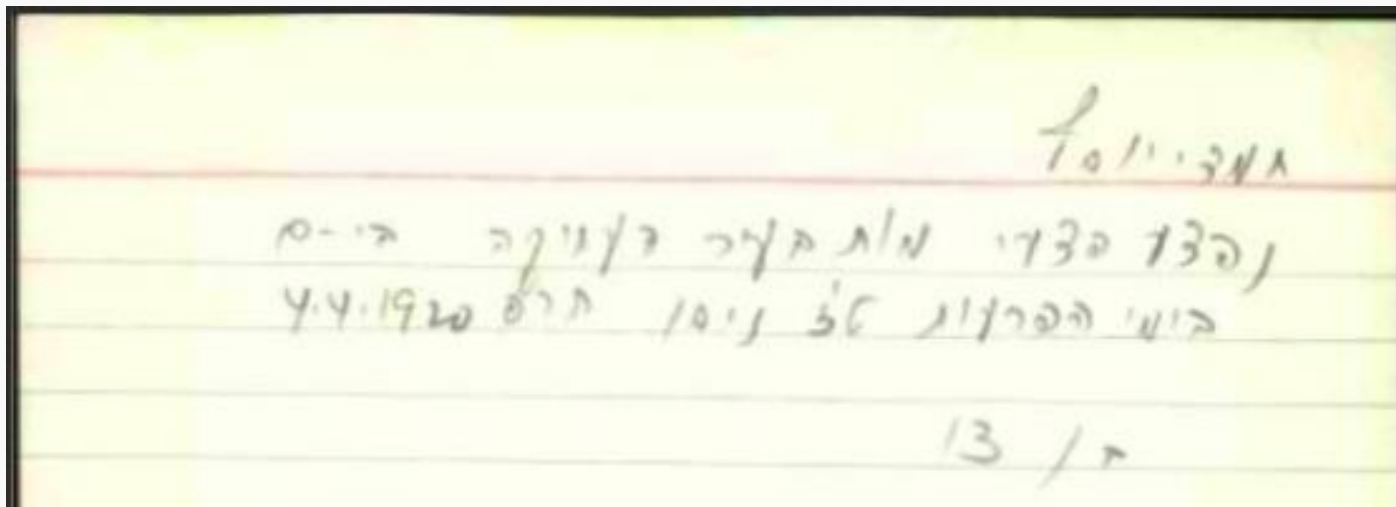 חמדי יוסף
נפצע פצעי מות בעיר העתיקה בי-ם
בימי הפרעות ט"ז ניסן תר"פ 4.4.1920
ב / 13